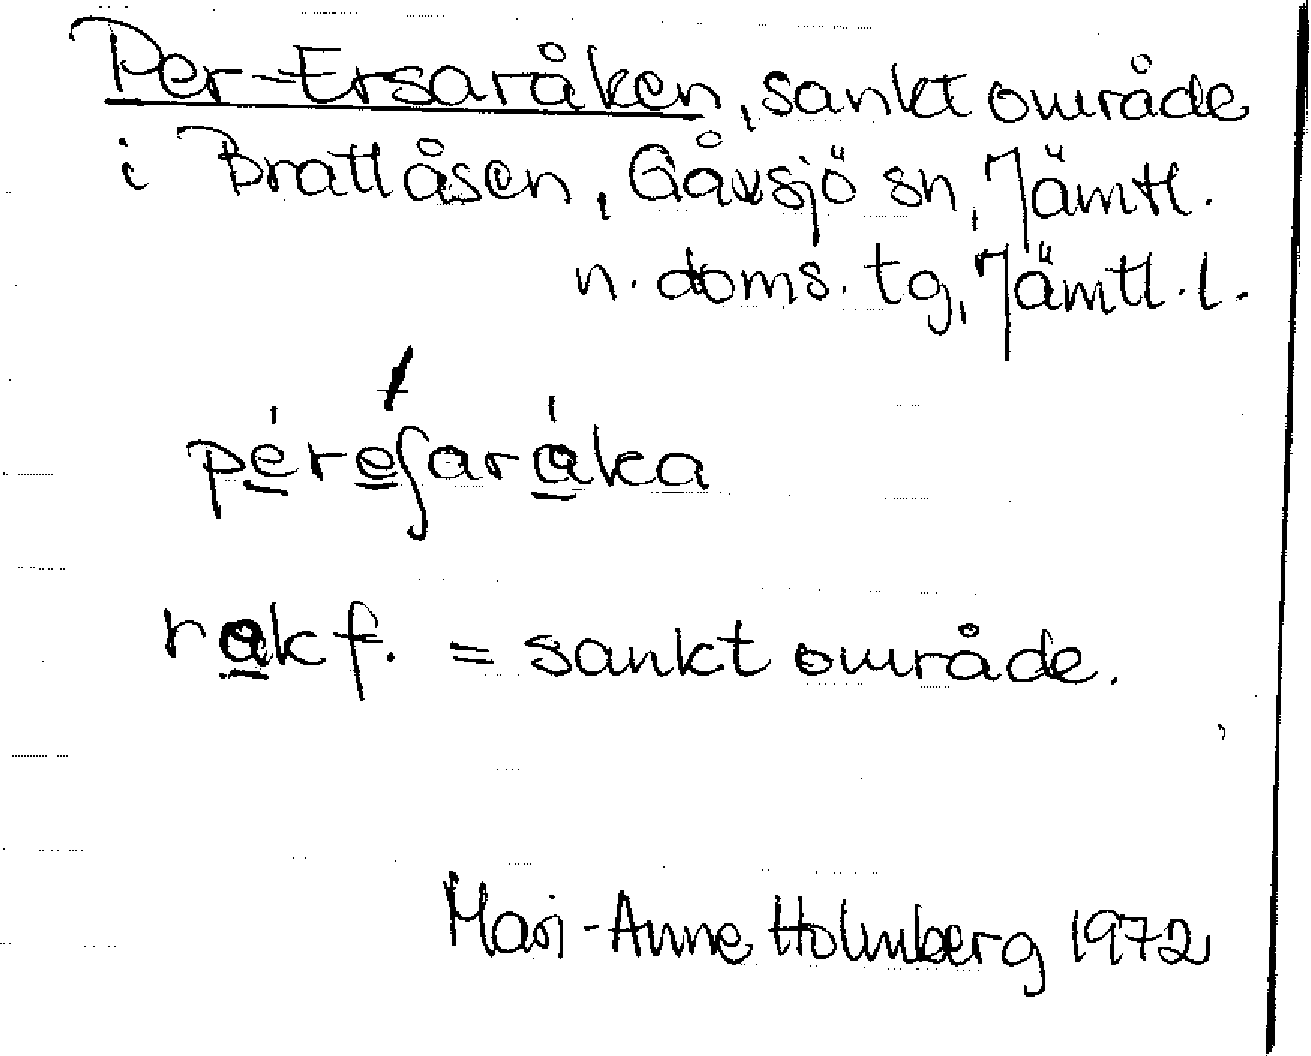 Per-Ersaråken, sankt område
i Brattåsen, Gåvsjö sn, Jämtl.
n. doms. tg, Jämtl. l.
pereʃaråka
rakf. = sankt område.
Mari-Anne Holmberg 1972